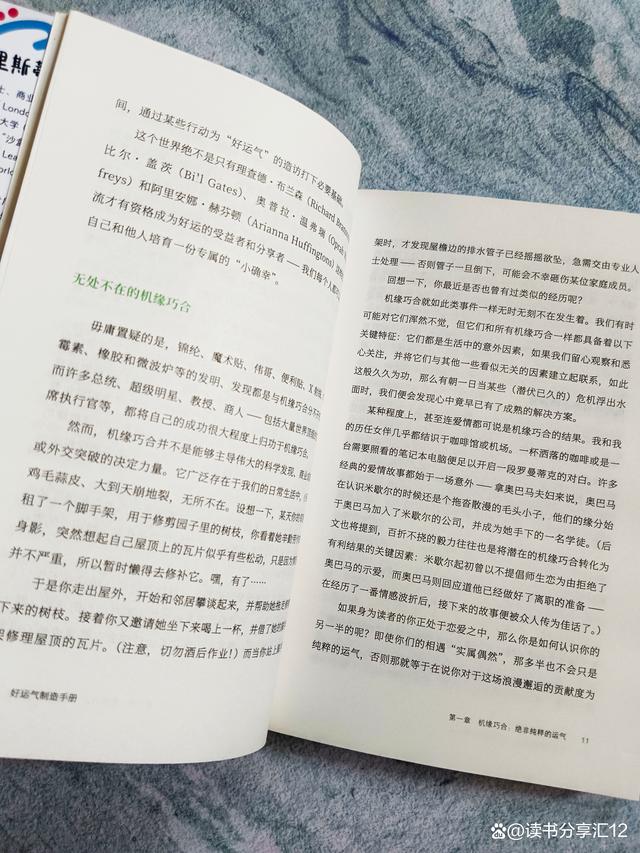 里旗
士、商业
Londo
大学
"沙盒
Lea
World
间，通过某些行动为“好运气”的造访打下必要基础。
这个世界绝不是只有理查德·布兰森（Richard Brans
比尔·盖茨（Bill Gates）、奥普拉·温弗瑞（Oprah
freys）和阿里安娜·赫芬顿（Arianna Huffingtons）这样的
流才有资格成为好运的受益者和分享者——我们每个人都
自己和他人培育一份专属的“小确幸”。
无处不在的机缘巧合
毋庸置疑的是，锦纶、魔术贴、伟哥、便利贴、X射线
霉素、橡胶和微波炉等的发明、发现都是与机缘巧合分不
而许多总统、超级明星、教授、商人——包括大量世界顶
席执行官等，都将自己的成功很大程度上归功于机缘巧合。
然而，机缘巧合并不是能够主导伟大的科学发现、商业
或外交突破的决定力量。它广泛存在于我们的日常生活中，
鸡毛蒜皮、大到天崩地裂，无所不在。设想一下，某天你的
租了一个脚手架，用于修剪园子里的树枝，你看着她辛勤
身影，突然想起自己屋顶上的瓦片似乎有些松动，只是因为
并不严重，所以暂时懒得去修补它。嘿，有了……
于是你走出屋外，开始和邻居攀谈起来，并帮助她拖走
下来的树枝。接着你又邀请她坐下来喝上一杯，并借了她
架修理屋顶的瓦片。（注意，切勿酒后作业！）而当你站上
好运气制造手册
架时，才发现屋檐边的排水管子已经摇摇欲坠，急需交由专业人
士处理——否则管子一旦倒下，可能会不幸砸伤某位家庭成员。
回想一下，你最近是否也曾有过类似的经历呢？
机缘巧合就如此类事件一样无时无刻不在发生着。我们有时
可能对它们浑然不觉，但它们和所有机缘巧合一样都具备着以下
关键特征：它们都是生活中的意外因素，如果我们留心观察和悉
心关注，并将它们与其他一些看似无关的因素建立起联系，如此
这般久久为功，那么有朝一日当某些（潜伏已久的）危机浮出水
面时，我们便会发现心中竟早已有了成熟的解决方案。
某种程度上，甚至连爱情都可说是机缘巧合的结果。我和我
的历任女伴几乎都结识于咖啡馆或机场。一杯洒落的咖啡或是一
台需要照看的笔记本电脑便足以开启一段罗曼蒂克的对白。许多
经典的爱情故事都始于一场意外——拿奥巴马夫妇来说，奥巴马
在认识米歇尔的时候还是个拖沓散漫的毛头小子，他们的缘分始
于奥巴马加入了米歇尔的公司，并成为她手下的一名学徒。（后
文也将提到，百折不挠的毅力往往也是将潜在的机缘巧合转化为
有利结果的关键因素：米歇尔起初曾以不提倡师生恋为由拒绝了
奥巴马的示爱，而奥巴马则回应道他已经做好了离职的准备——
在经历了一番情感波折后，接下来的故事便被众人传为佳话了。）
如果身为读者的你正处于恋爱之中，那么你是如何认识你的
另一半的呢？即使你们的相遇“实属偶然”，那多半也不会只是
纯粹的运气，否则那就等于在说你对于这场浪漫邂逅的贡献度为
第一章 机缘巧合：绝非纯粹的运气 11
@读书分享汇12